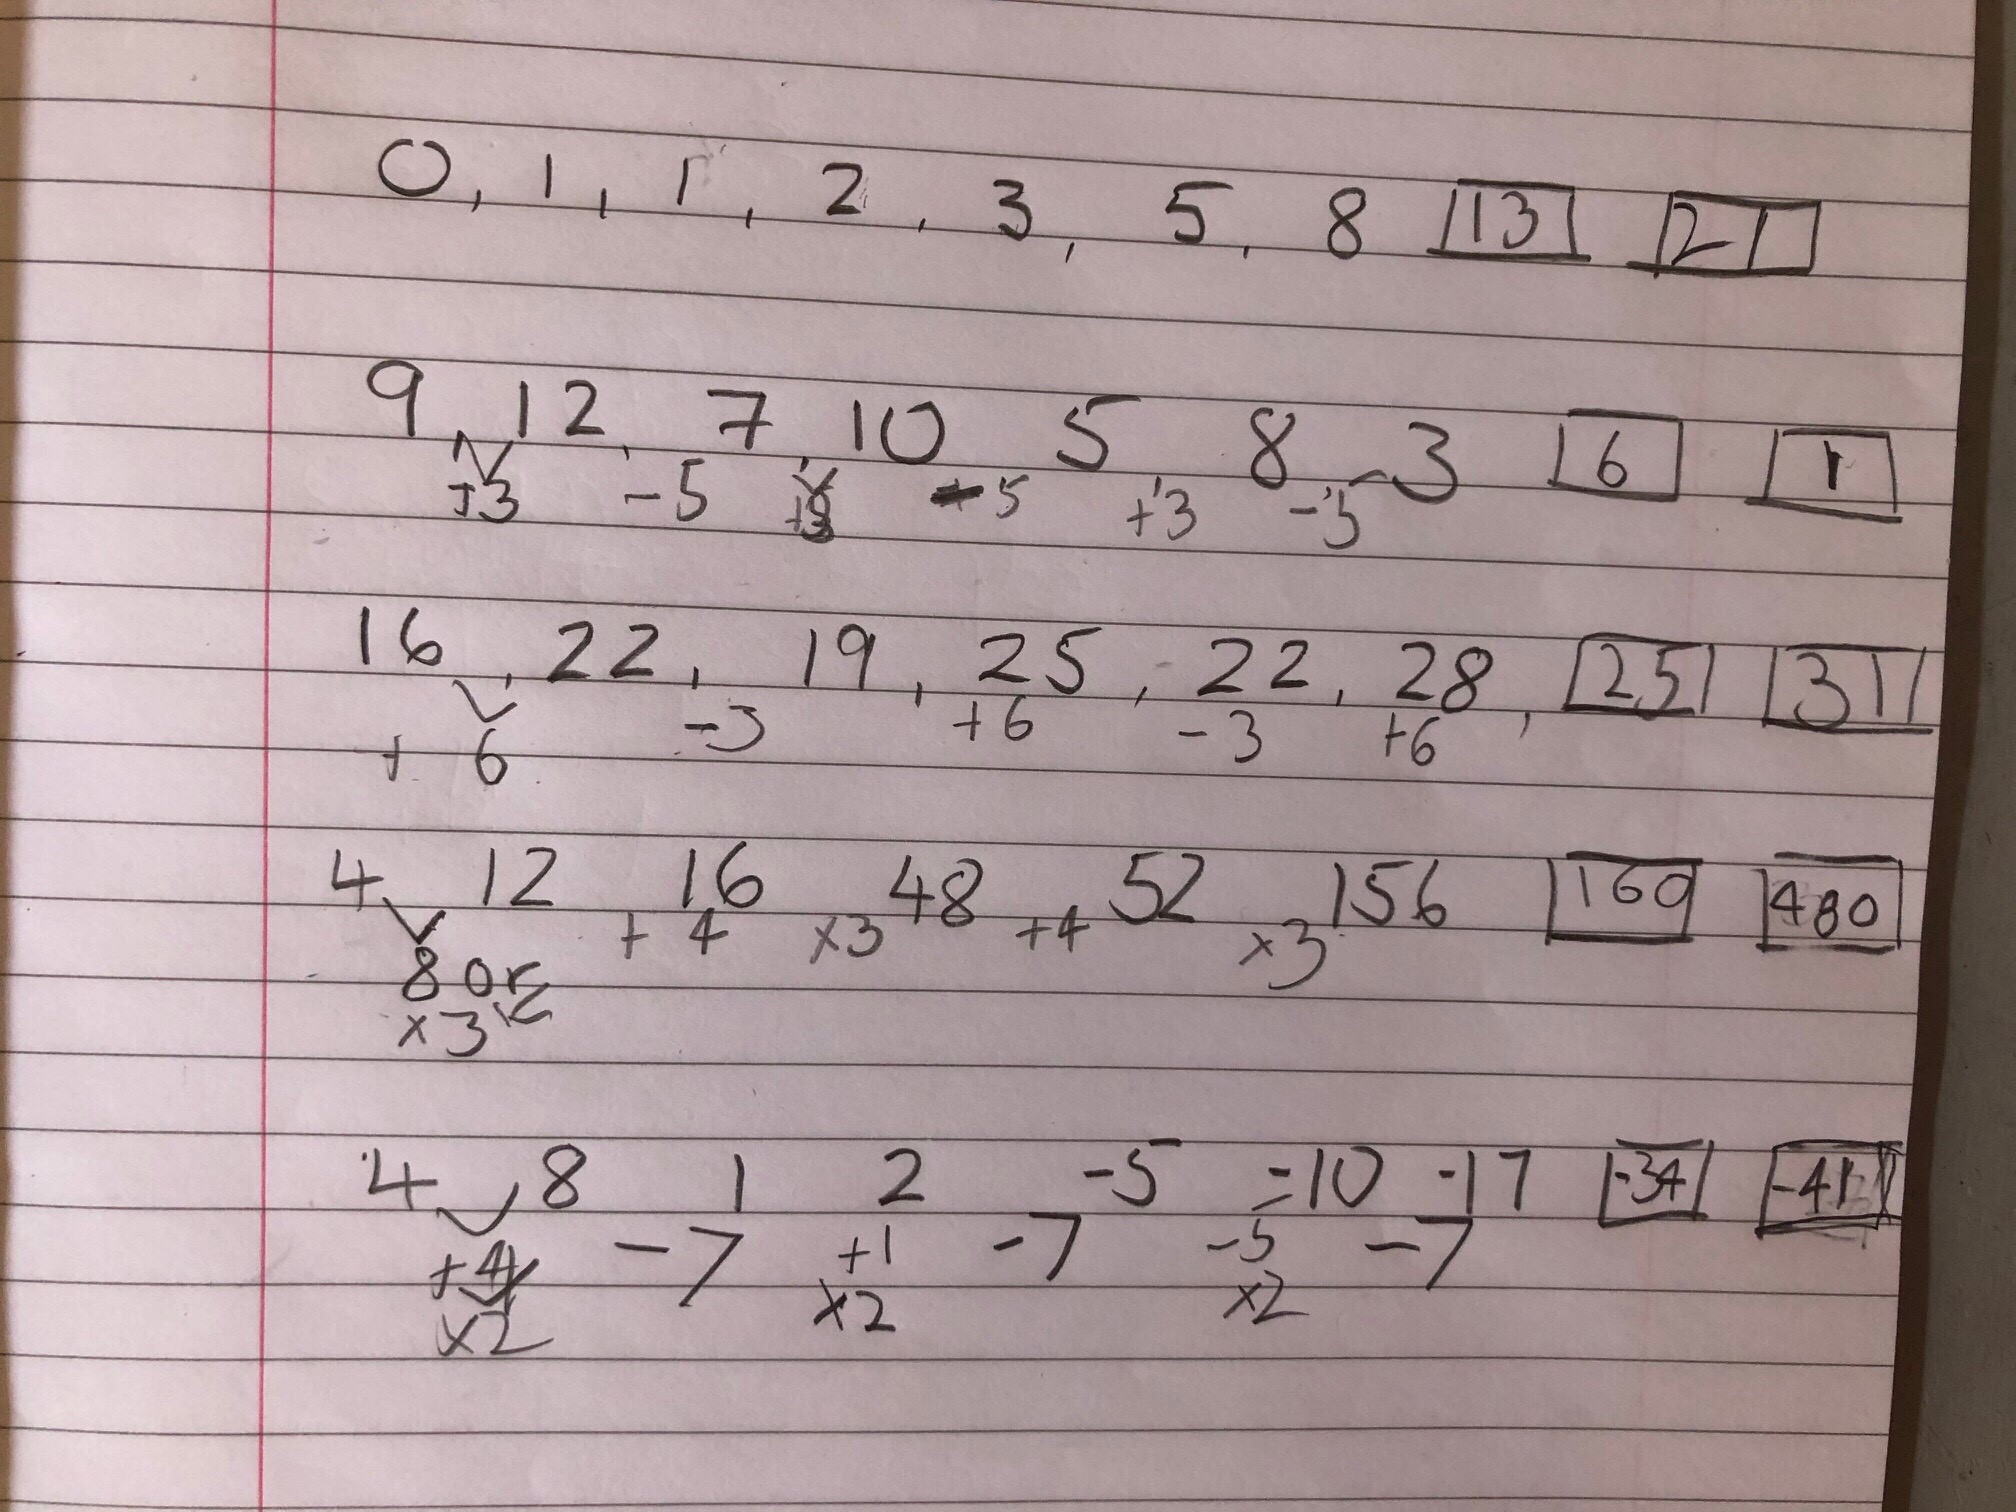 0, 1, 1, 2, 3, 5, 8 13 21
9, 12, 7, 10 5, 8, 3 6 1
+3 -5 -5 +3 -5
16, 22, 19, 25, 22, 28, 25 31
+6 -3 +6 -3 +6
4 12 16 48 52 156 160 480
+4 x3 +4 x3
8 or
x3
4 8 1 2 -5 -10 -17 -34 -41
+4 -7 +1 -7 -5 -7
x2 x2 x2